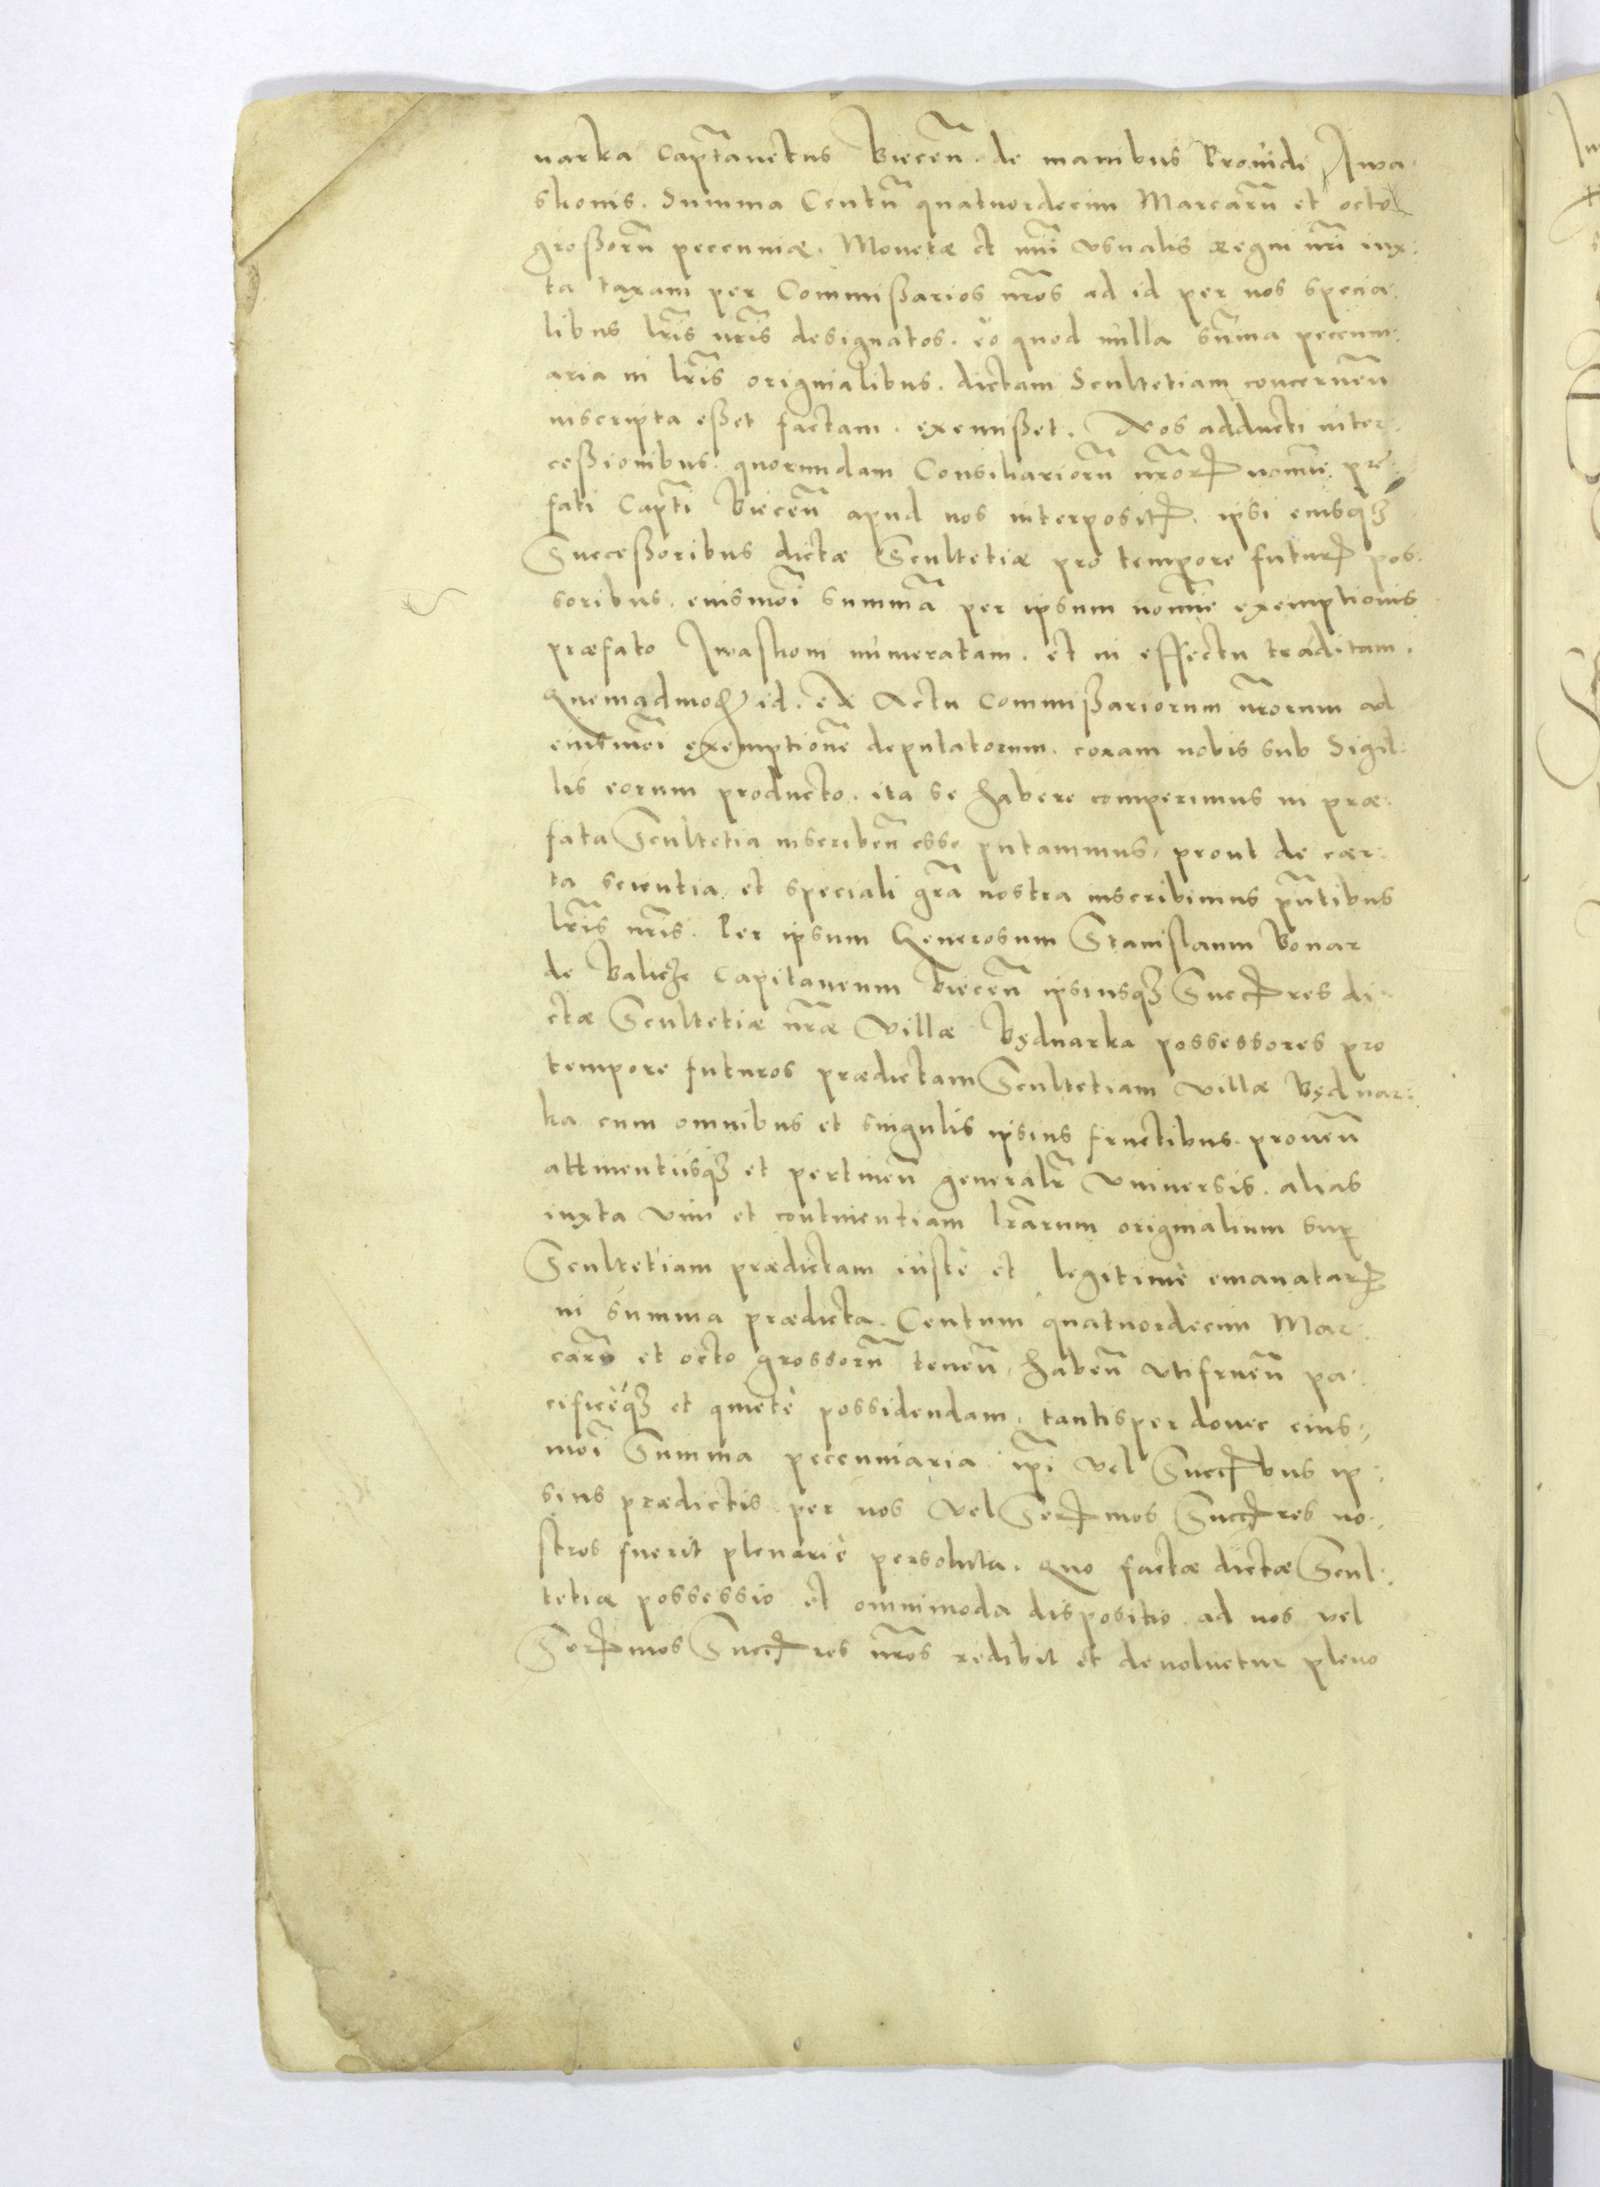 narka Capt̃anetus Biecen̄. de manibus Prouidi Iwa-
skonis. Summa Centū quatuordecim Marcarū et octo
großorū pecuniæ. Monetæ et nūi vsualis regni nr̃i iux-
ta taxam per Commißarios nr̃os ad id per nos specia-
libus lr̃is nr̃is designatos. eò quod nulla sum̄a pecuni-
aria in lr̃is originalibus. dictam Scultetiam concernen̄
inscripta eßet factam. exemißet. Nos adducti inter-
ceßionibus. quorundam Consiliariorū nr̃orꝝ nomĩe præ-
fati Capt̃i Biecen̄ apud nos interpositꝝ. ipsi eiusqꝫ
Succeßoribus dictæ Scultetiæ pro tempore futurꝝ pos-
soribus. eiusmõi summã per ipsum nomĩe exemptionis
præfato Iwaskoni numeratam. et in effectu traditam.
Quemadmodꝝ id. ex Actu Commißariorum nr̃orum ad
eiusmõi exemptionē deputatorum. coram nobis sub Sigil-
lis eorum producto. ita se habere comperimus in præ-
fata Scultetia inscribēn esse putauimus, prout de cer-
ta scientia et speciali gr̃a nostra inscribimus pñtibus
lr̃is nr̃is. Per ipsum Generosum Stanislaum Bonar
de Balicze Capitaneum Biecen̄ ipsiusqꝫ Succꝝres di-
ctæ Scultetiæ nr̃æ Villæ Bydnarka possessores pro
tempore futuros prædictam Scultetiam villæ Bydnar-
ka cum omnibus et singulis ipsius fructibus. prouen̄
attinentiisqꝫ et pertinen̄ generalr̃ Vniuersis. alias
iuxta vim et continentiam lr̃arum originalium sup
Scultetiam prædictam iustè et legitimè emanatarꝝ
in summa prædicta. Centum quatuordecim Mar-
carū et octo grossorū tenen̄, haben̄ vtifruen̄ pa-
cificèqꝫ et quietè possidendam, tantisper donec eius-
mõi Summa pecuniaria ip̃i vel Succꝝbus ip-
sius prædictis per nos vel Serꝝmos Succꝝres no-
stros fuerit plenariè persoluta. Quo factæ dictæ Scul-
tetiæ possessio et omnimoda dispositio ad nos vel
Serꝝmos Succꝝres nr̃os redibit et deuoluetur pleno